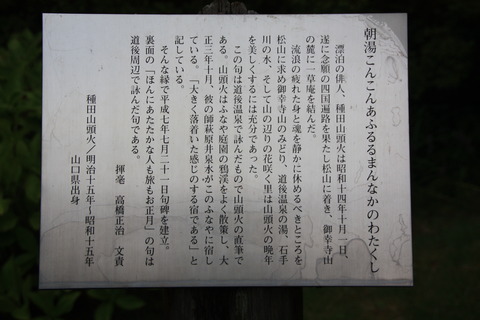 朝湯こんこんあふるるまんなかのわたくし
漂泊の俳人、種田山頭火は昭和十四年十月一日、
遂に念願の四国遍路を果たし松山に着き、御幸寺山
の麓に一草庵を結んだ。
流浪の疲れた身と魂を静かに休めるべきところを
松山に求め御幸寺山のみどり、道後温泉の湯、石手
川の水、そして山の辺りの花咲く里は山頭火の晩年
を美しくするには充分であった。
この句は道後温泉で詠んだもので山頭火の直筆で
ある。山頭火はふなや庭園の鴉渓をよく散策し、大
正三年十月、彼の師萩原井泉水がこのふなやに宿し
ている。「大きく落着いた感じのする宿である」と
記している。
そんな縁で平成七年七月二十一日句碑を建立。
裏面の「ほんにあたたかな人も旅もお正月」の句は
道後周辺で詠んだ句である。
揮毫 高橋正治 文責
種田山頭火/明治十五年~昭和十五年
山口県出身